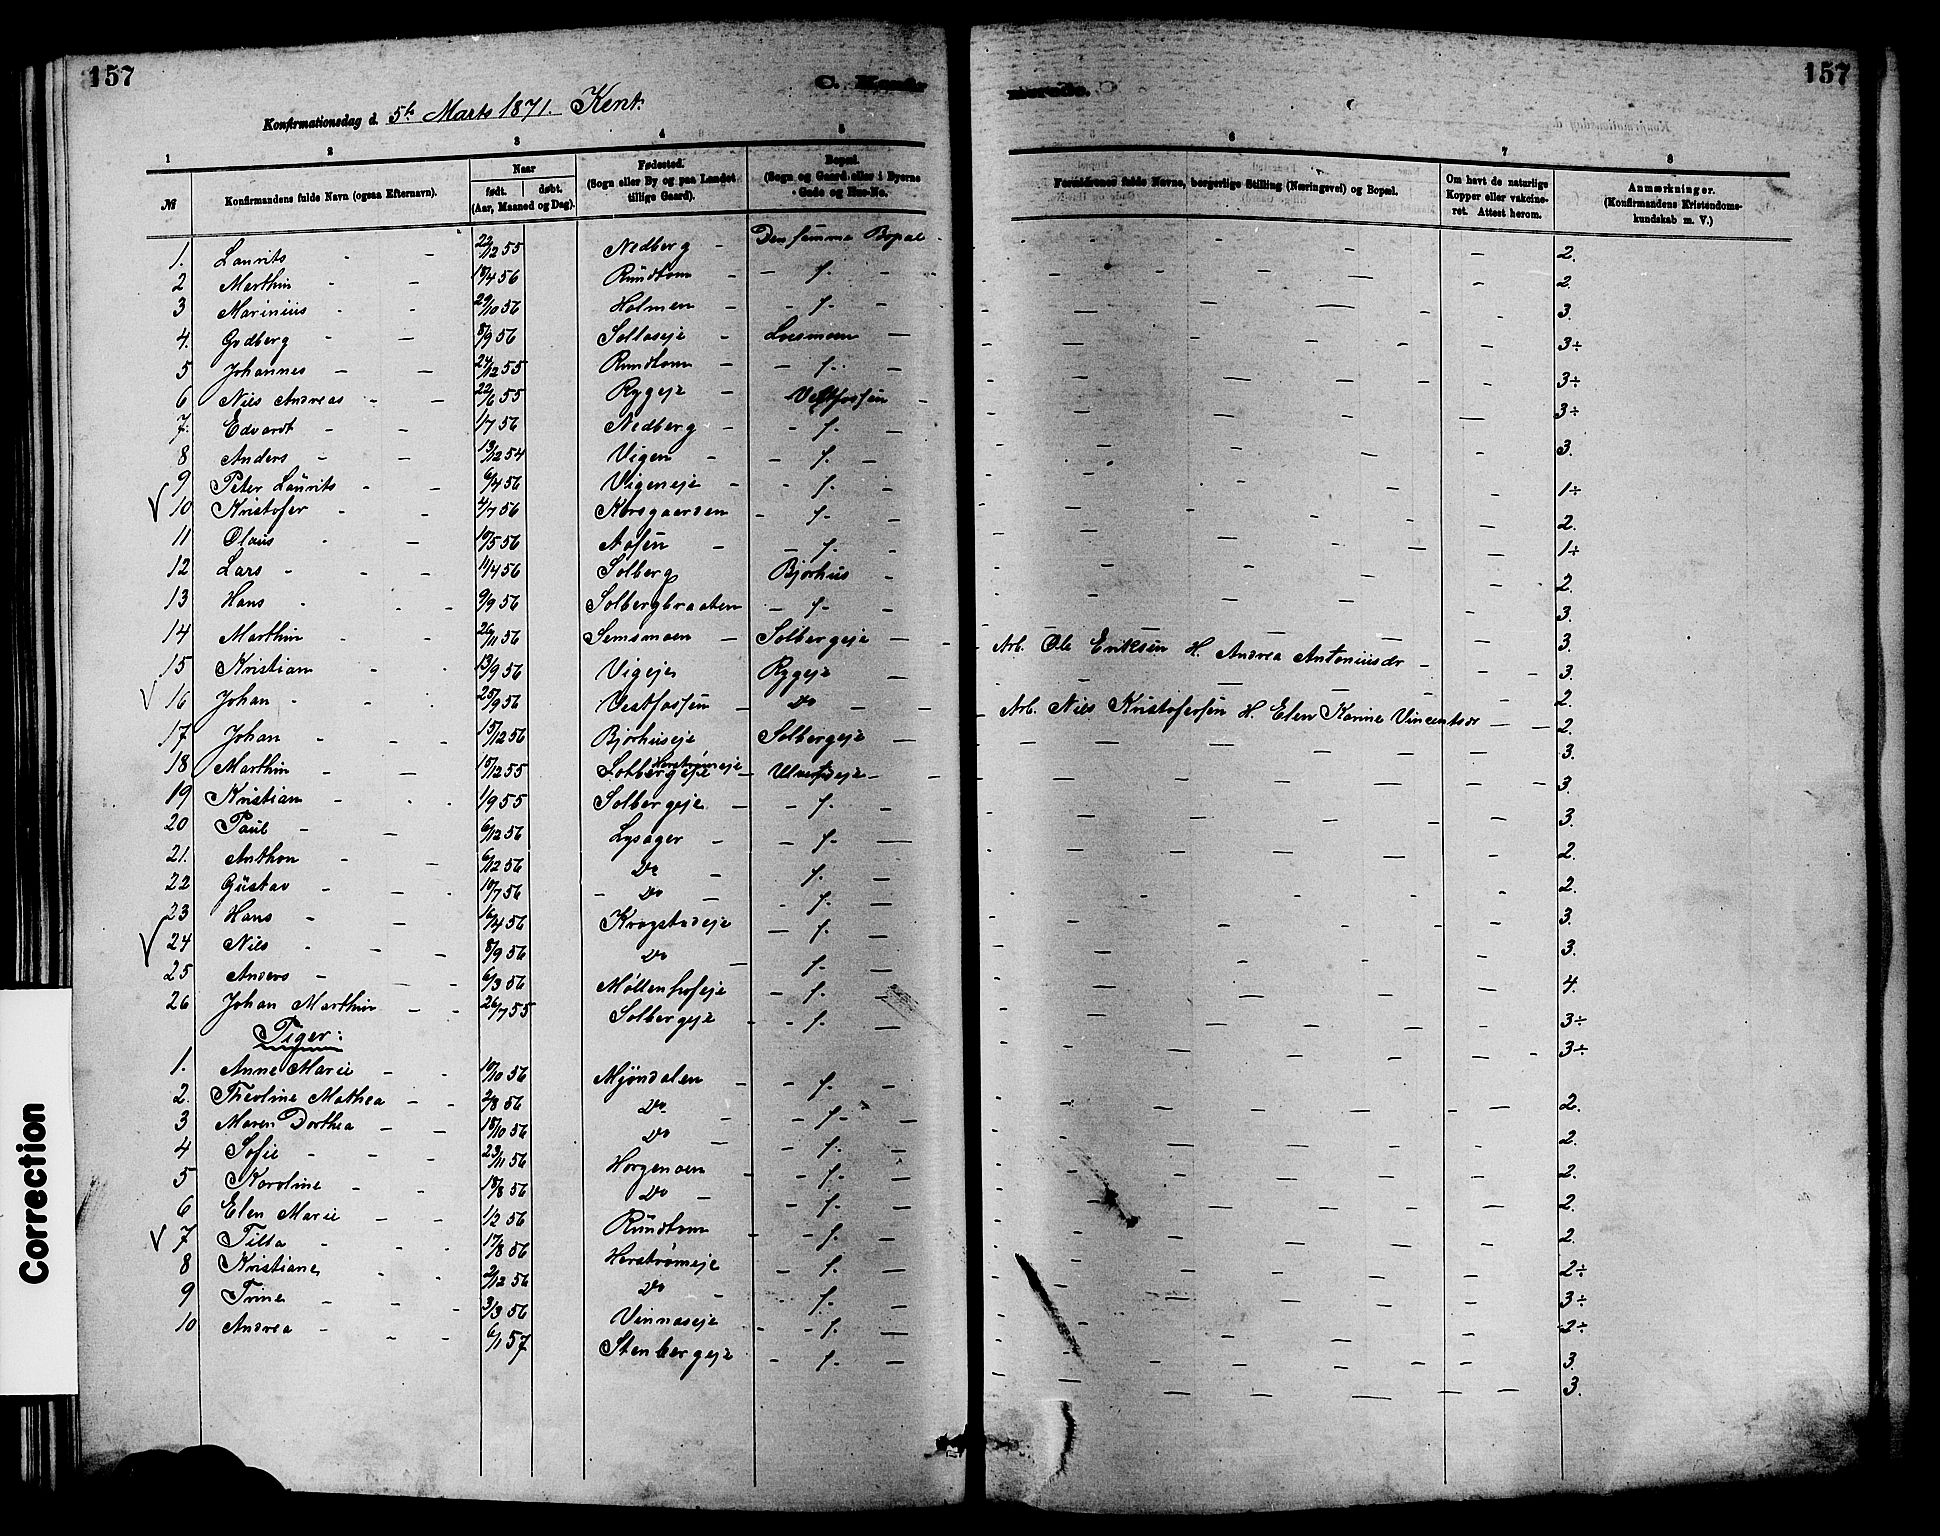 157
C. Konfir
157
Konfirmationsdag d. 5te Marts 1871. Kent.
1 2 3 4 5 6 7 8
№ Konfirmandens fulde Navn (ogsaa Efternavn). Naar født. døbt. (Aar, Maaned og Dag). Fødested. (Sogn eller By og paa Landet tillige Gaard). Bopæl. (Sogn og Gaard eller i Byerne Gade og Hus-No. Forældrenes fulde Navne, borgerlige Stilling (Næringsvei) og Bopæl. Om havt de naturlige Kopper eller vakcineret. Attest herom. Anmærkninger. (Konfirmandens Kristendomskundskab m. V.)
1. Laurits 22/12 55 Nedberg Den samma Bopæl 2.
2 Marthin 18/4 56 Rundtom 2.
3 Marinius 29/10 56 Holmen 3.
4. Godberg 8/9 56 Loesmoen 3÷
5 Johannes 24/12 55 Rundtom 3÷
6 Nils Andreas 22/6 55 Rygeje Vestfossen 3÷
7. Edvardt 1/7 56 Nedberg 3.
8 Anders 13/12 54 Vigen
9 Peter Laurits 6/4 56 Vigeneje 1÷
10 Kristofer 4/7 56 Korsgaarden 2.
11 Olaus 10/5 56 Aasen 1÷
12 Lars 11/4 56 Solberg Bjorhus 2.
13 Hans 9/9 56 Solbergbraaten 3.
14 Marthin 26/11 56 Semsmoen Solbergeje Arb. Ole Eriksen H. Andrea Antoniusdr 3.
15 Kristian 13/9 56 Vigeje Rygeje 3.
16 Johan 25/9 56 Vestfossen Do Arb. Nils Kristofersen H. Elen Karine Vincentsdr 2.
17 Johan 15/12 56 Bjorhuseje Solbergeje 2.
18 Marthin 15/12 55 Solbergeje Herstrømeje 3.
19 Kristian 1/9 55 Solbergeje 3.
20 Paul 6/12 56 Lysager 3.
21. Anthon 6/12 56 Do 2.
22 Gustav 10/7 56 Do 2.
23 Hans 16/4 56 Kragstadeje 3.
24 Nils 8/9 56 Do 3.
25 Anders 6/3 56 Møllenhofeje 4.
26 Johan Marthin 26/7 55 Solbergeje 3÷
Piger: 3÷
1. Anne Marie 10/10 56 Mjøndalen
2. Theoline Mathea 2/8 56 Do 2.
3 Maren Dorthea 18/10 56 Do 2.
4 Sofie 23/11 56 Horgenoen 2.
5 Karoline 18/8 56 Do 2.
6 Elen Marie 1/2 56 Rundtom 2.
7 Tilla 17/8 56 Herstrømeje 2÷
8 Kristiane 2/12 56 Do 3÷
9 Trine 3/3 56 Vinnaseje 2÷
10 Andrea 6/1 57 Stenbergeje 3.
3.
Correction